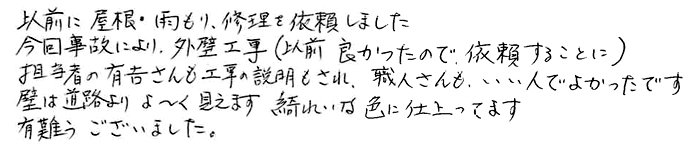 以前に屋根・雨もり、修理を依頼しました
今回事故により、外壁工事(以前 良かったので、依頼することに)
担当者の有吉さんも工事の説明もされ、職人さんも、いい人でよかったです
壁は道路より よ〜く見えます 綺れいな色に仕上ってます
有難うございました。